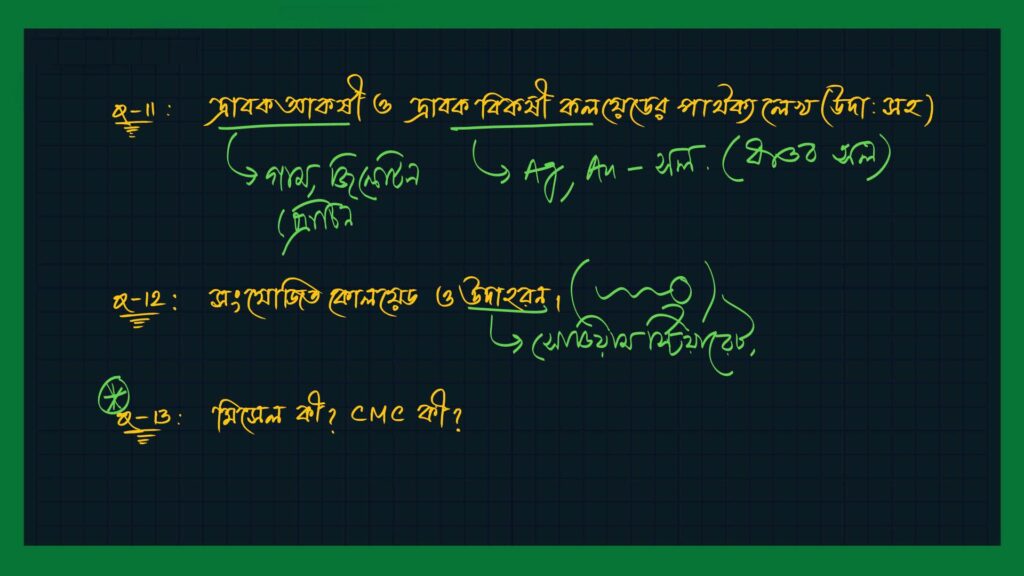 Q-11: দ্রাবক আকর্ষী ও দ্রাবক বিকর্ষী কলয়েডের পার্থক্য লেখ (উদা: সহ)
গাম, জিলেটিন
প্রোটিন
Ag, Au - সল. (ধাতব সল)
Q-12: সংযোজিত কোলয়েড ও উদাহরন।
সোডিয়াম স্টিয়ারেট.
Q-13: মিসেল কী? CMC কী?